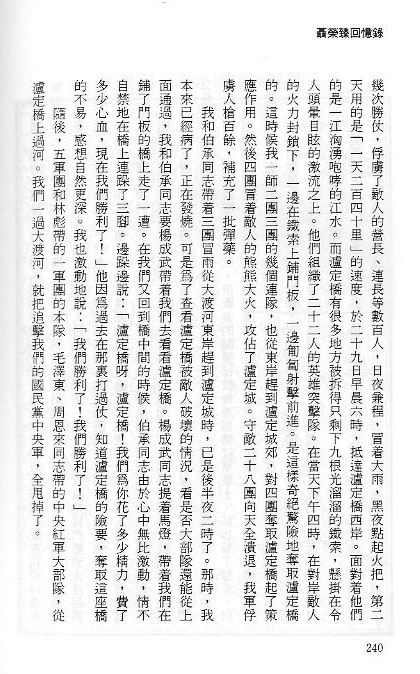 聶榮臻回憶錄
幾次勝仗，俘虜了敵人的營長、連長等數百人，日夜兼程，冒着大雨，黑夜點起火把，第二
天用的是「一天二百四十里」的速度，於二十九日早晨六時，抵達瀘定橋西岸。面對着他們
的是一江洶湧咆哮的江水。而瀘定橋有很多地方被拆得只剩下九根光溜溜的鐵索，懸掛在令
人頭暈目眩的激流之上。他們組織了二十二人的英雄突擊隊。在當天下午四時，在對岸敵人
的火力封鎖下，一邊在鐵索上鋪門板，一邊匍匐射擊前進。是這樣奇絕驚險地奪取瀘定橋
的。這時候我一師二團三團的幾個連隊，也從東岸趕到瀘定城郊，對四團奪取瀘定橋起了策
應作用。然後四團冒着敵人的熊熊大火，攻佔了瀘定城。守敵二十八團向天全潰退，我軍俘
虜人槍百餘，補充了一批彈藥。
我和伯承同志帶着三團冒雨從大渡河東岸趕到瀘定城時，已是後半夜二時了。那時，我
本來已經病了，正在發燒。可是爲了查看瀘定橋被敵人破壞的情況，看是否大部隊還能從上
面通過，我和伯承同志要楊成武帶着我們去看看瀘定橋。楊成武同志提着馬燈，帶着我們在
鋪了門板的橋上走了一遭。在我們又回到橋中間的時候，伯承同志由於心中無比激動，情不
自禁地在橋上連跺了三腳。邊跺邊說：「瀘定橋呀，瀘定橋！我們爲你花了多少精力，費了
多少心血，現在我們勝利了！」他因爲過去在那裏打過仗，知道瀘定橋的險要，奪取這座橋
的不易，感想自然更深。我也激動地說：「我們勝利了！我們勝利了！」
隨後，五軍團和林彪帶的一軍團的本隊，毛澤東、周恩來同志帶的中央紅軍大部隊，從
瀘定橋上過河。我們一過大渡河，就把追擊我們的國民黨中央軍，全甩掉了。
240